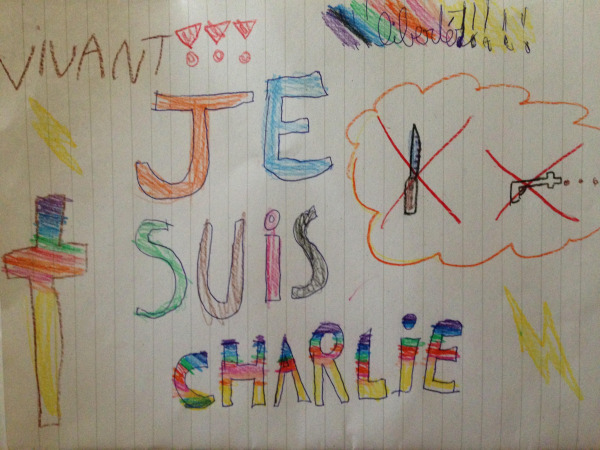 VIVANT!!!
liberté!!!!!
JE
SUIS
CHARLIE